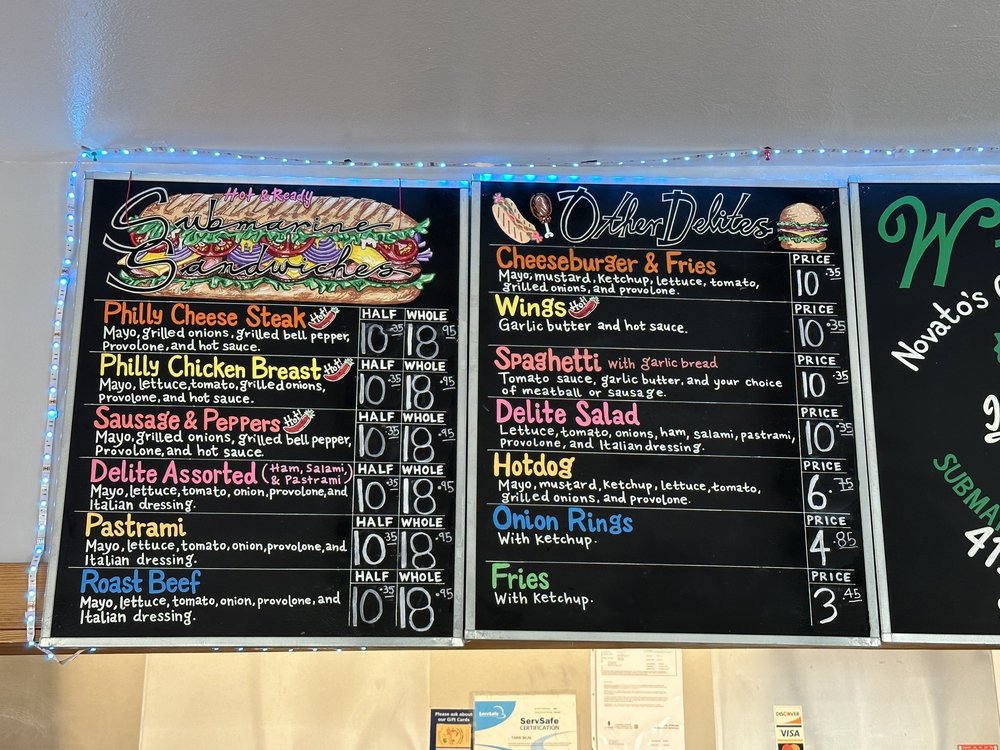 Hot & Ready
Submarine
Sandwiches
Philly Cheese Steak Hot! HALF WHOLE
Mayo, grilled onions, grilled bell pepper, 10.35 18.95
Provolone, and hot sauce.
Philly Chicken Breast Hot! HALF WHOLE
Mayo, lettuce, tomato, grilled onions, 10.35 18.95
provolone, and hot sauce.
Sausage & Peppers Hot! HALF WHOLE
Mayo, grilled onions, grilled bell pepper, 10.35 18.95
Provolone, and hot sauce.
Delite Assorted (Ham, Salami, HALF WHOLE
& Pastrami)
Mayo, lettuce, tomato, onion, provolone, and 10.35 18.95
Italian dressing.
Pastrami HALF WHOLE
Mayo, lettuce, tomato, onion, provolone, and 10.35 18.95
Italian dressing.
Roast Beef HALF WHOLE
Mayo, lettuce, tomato, onion, provolone, and 10.35 18.95
Italian dressing.
Other Delites
Cheeseburger & Fries PRICE
Mayo, mustard, Ketchup, lettuce, tomato, 10.35
grilled onions, and provolone.
Wings Hot! PRICE
Garlic butter and hot sauce. 10.35
Spaghetti with garlic bread PRICE
Tomato sauce, garlic butter, and your choice 10.35
of meatball or sausage.
Delite Salad PRICE
Lettuce, tomato, onions, ham, salami, pastrami, 10.35
Provolone, and Italian dressing.
Hotdog PRICE
Mayo, mustard, Ketchup, lettuce, tomato, 6.75
grilled onions, and provolone.
Onion Rings PRICE
With Ketchup. 4.85
Fries PRICE
With Ketchup. 3.45
W
Novato's
SUBMA
41
Please ask about
our Gift Cards
ServSafe
ServSafe
CERTIFICATION
DISCOVER
VISA